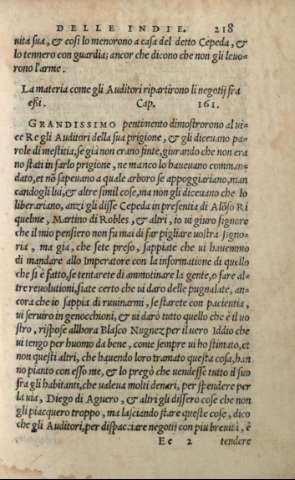 DELLE INDIE. 218
uita sua, & cosi lo menorono a casa del detto Cepeda, &
lo tennero con guardia; ancor che dicono che non gli leuo-
rono l'arme.
La materia come gli Auditori ripartirono li negotij fra
essi. Cap. 161.
GRANDISSIMO pentimento dimostrorono al ui-
ce Re gli Auditori della sua prigione, & gli diceuano pa-
role di mestitia, se già non erano finte, giurando che non era
no stati in farlo prigione, ne manco lo haueuano comman-
dato, et nō sapeuano a quale arboro se appoggiariano, man
candogli lui, & altre simil cose, ma non gli diceuano che lo
liberariano, anzi gli disse Cepeda in presentia di Alōso Ri
quelnie, Martino di Robles, & altri, io ui giuro signore
che il mio pensiero non fu mai di far pigliare uostra signo-
ria, ma già, che sete preso, sappiate che ui hauemmo
di mandare allo Imperatore con la informatione di quello
che si è fatto, se tentarete di ammotinare la gente, o fare al-
tre reuolutioni, siate certo che ui daro delle pugnalate, an-
cora che io sappia di ruuinarmi, se starete con pacientia,
ui seruiro in genocchioni, & ui darò tutto quello che è il uo
stro, rispose allhora Blasco Nugnez per il uero Iddio che
ui tengo per huomo da bene, come sempre ui ho stimato, et
non questi altri, che hauendo loro tramato questa cosa, han
no pianto con esso me, & lo pregò che uendesse tutto il suo
fra gli habitanti, che ualeua molti denari, per spendere per
la uia, Diego di Aguero, & altri gli dissero cose che non
gli piacquero troppo, ma lasciando stare queste cose, dico
che gli Auditori, per dispacciare negotij con piu breuità, è
Ee 2 tendere